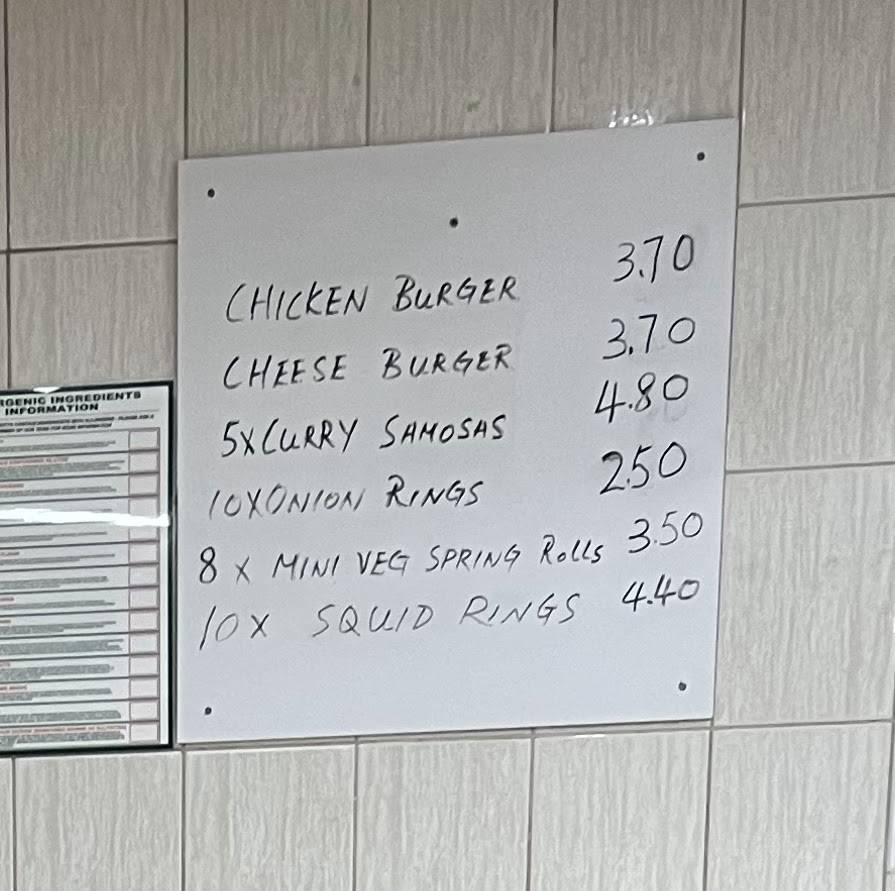 CHICKEN BURGER 3.70
CHEESE BURGER 3.70
5XCURRY SAMOSAS 4.80
10XONION RINGS 2.50
8 X MINI VEG SPRING Rolls 3.50
10X SQUID RINGS 4.40
RGENIC INGREDIENTS
INFORMATION